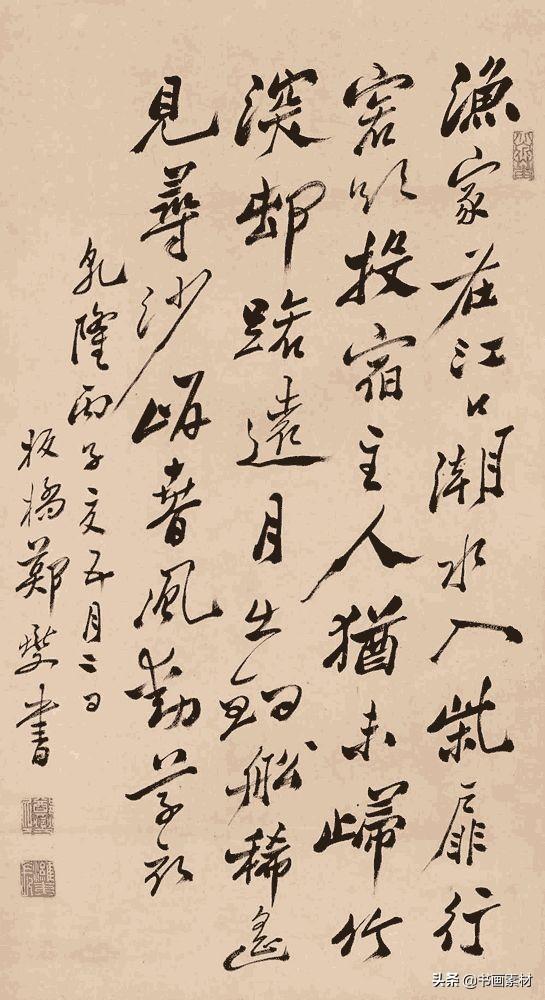 漁家在江口潮水入柴扉行
客欲投宿主人猶未歸竹
深邨路遠月出釣船稀遙
見尋沙岸春風動草衣
乾隆丙子夏五月二日
板橋鄭燮書
头条 @书画素材